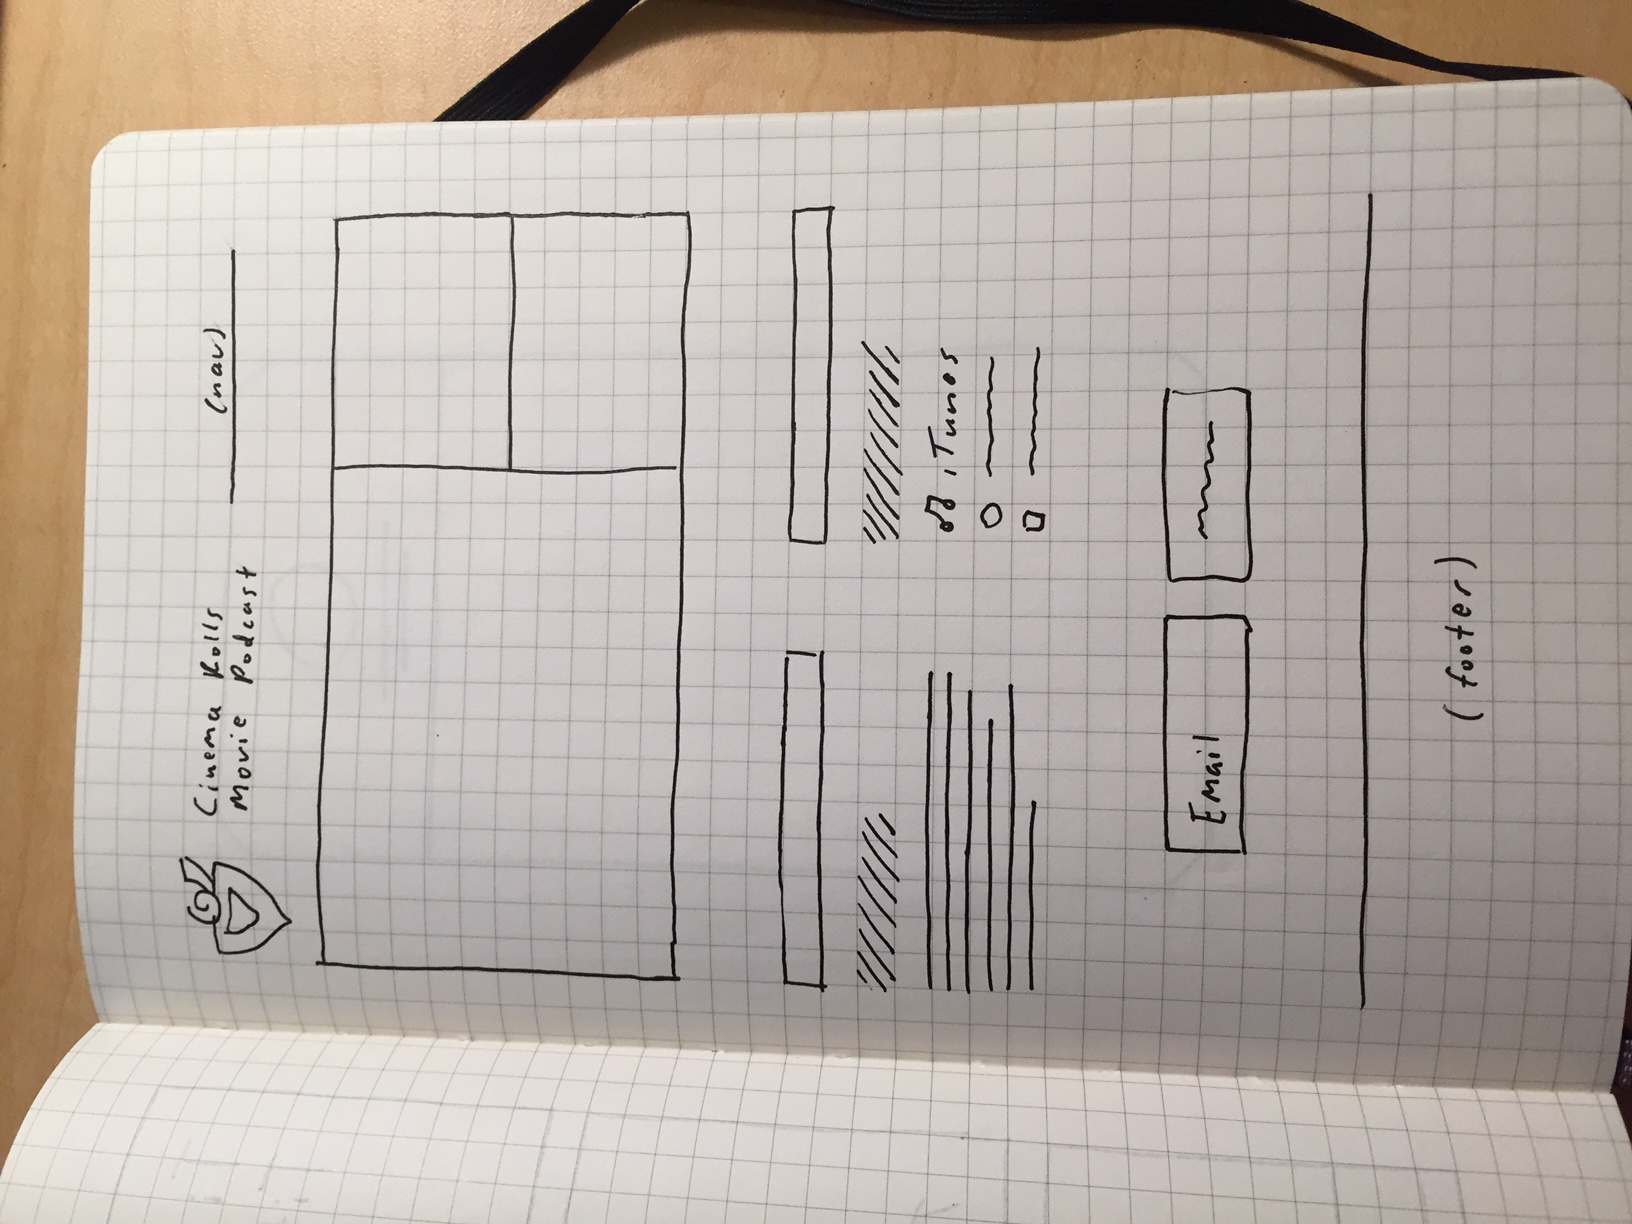 Cinema Rolls
Movie Podcast
(nav)
iTunes
Email
(footer)